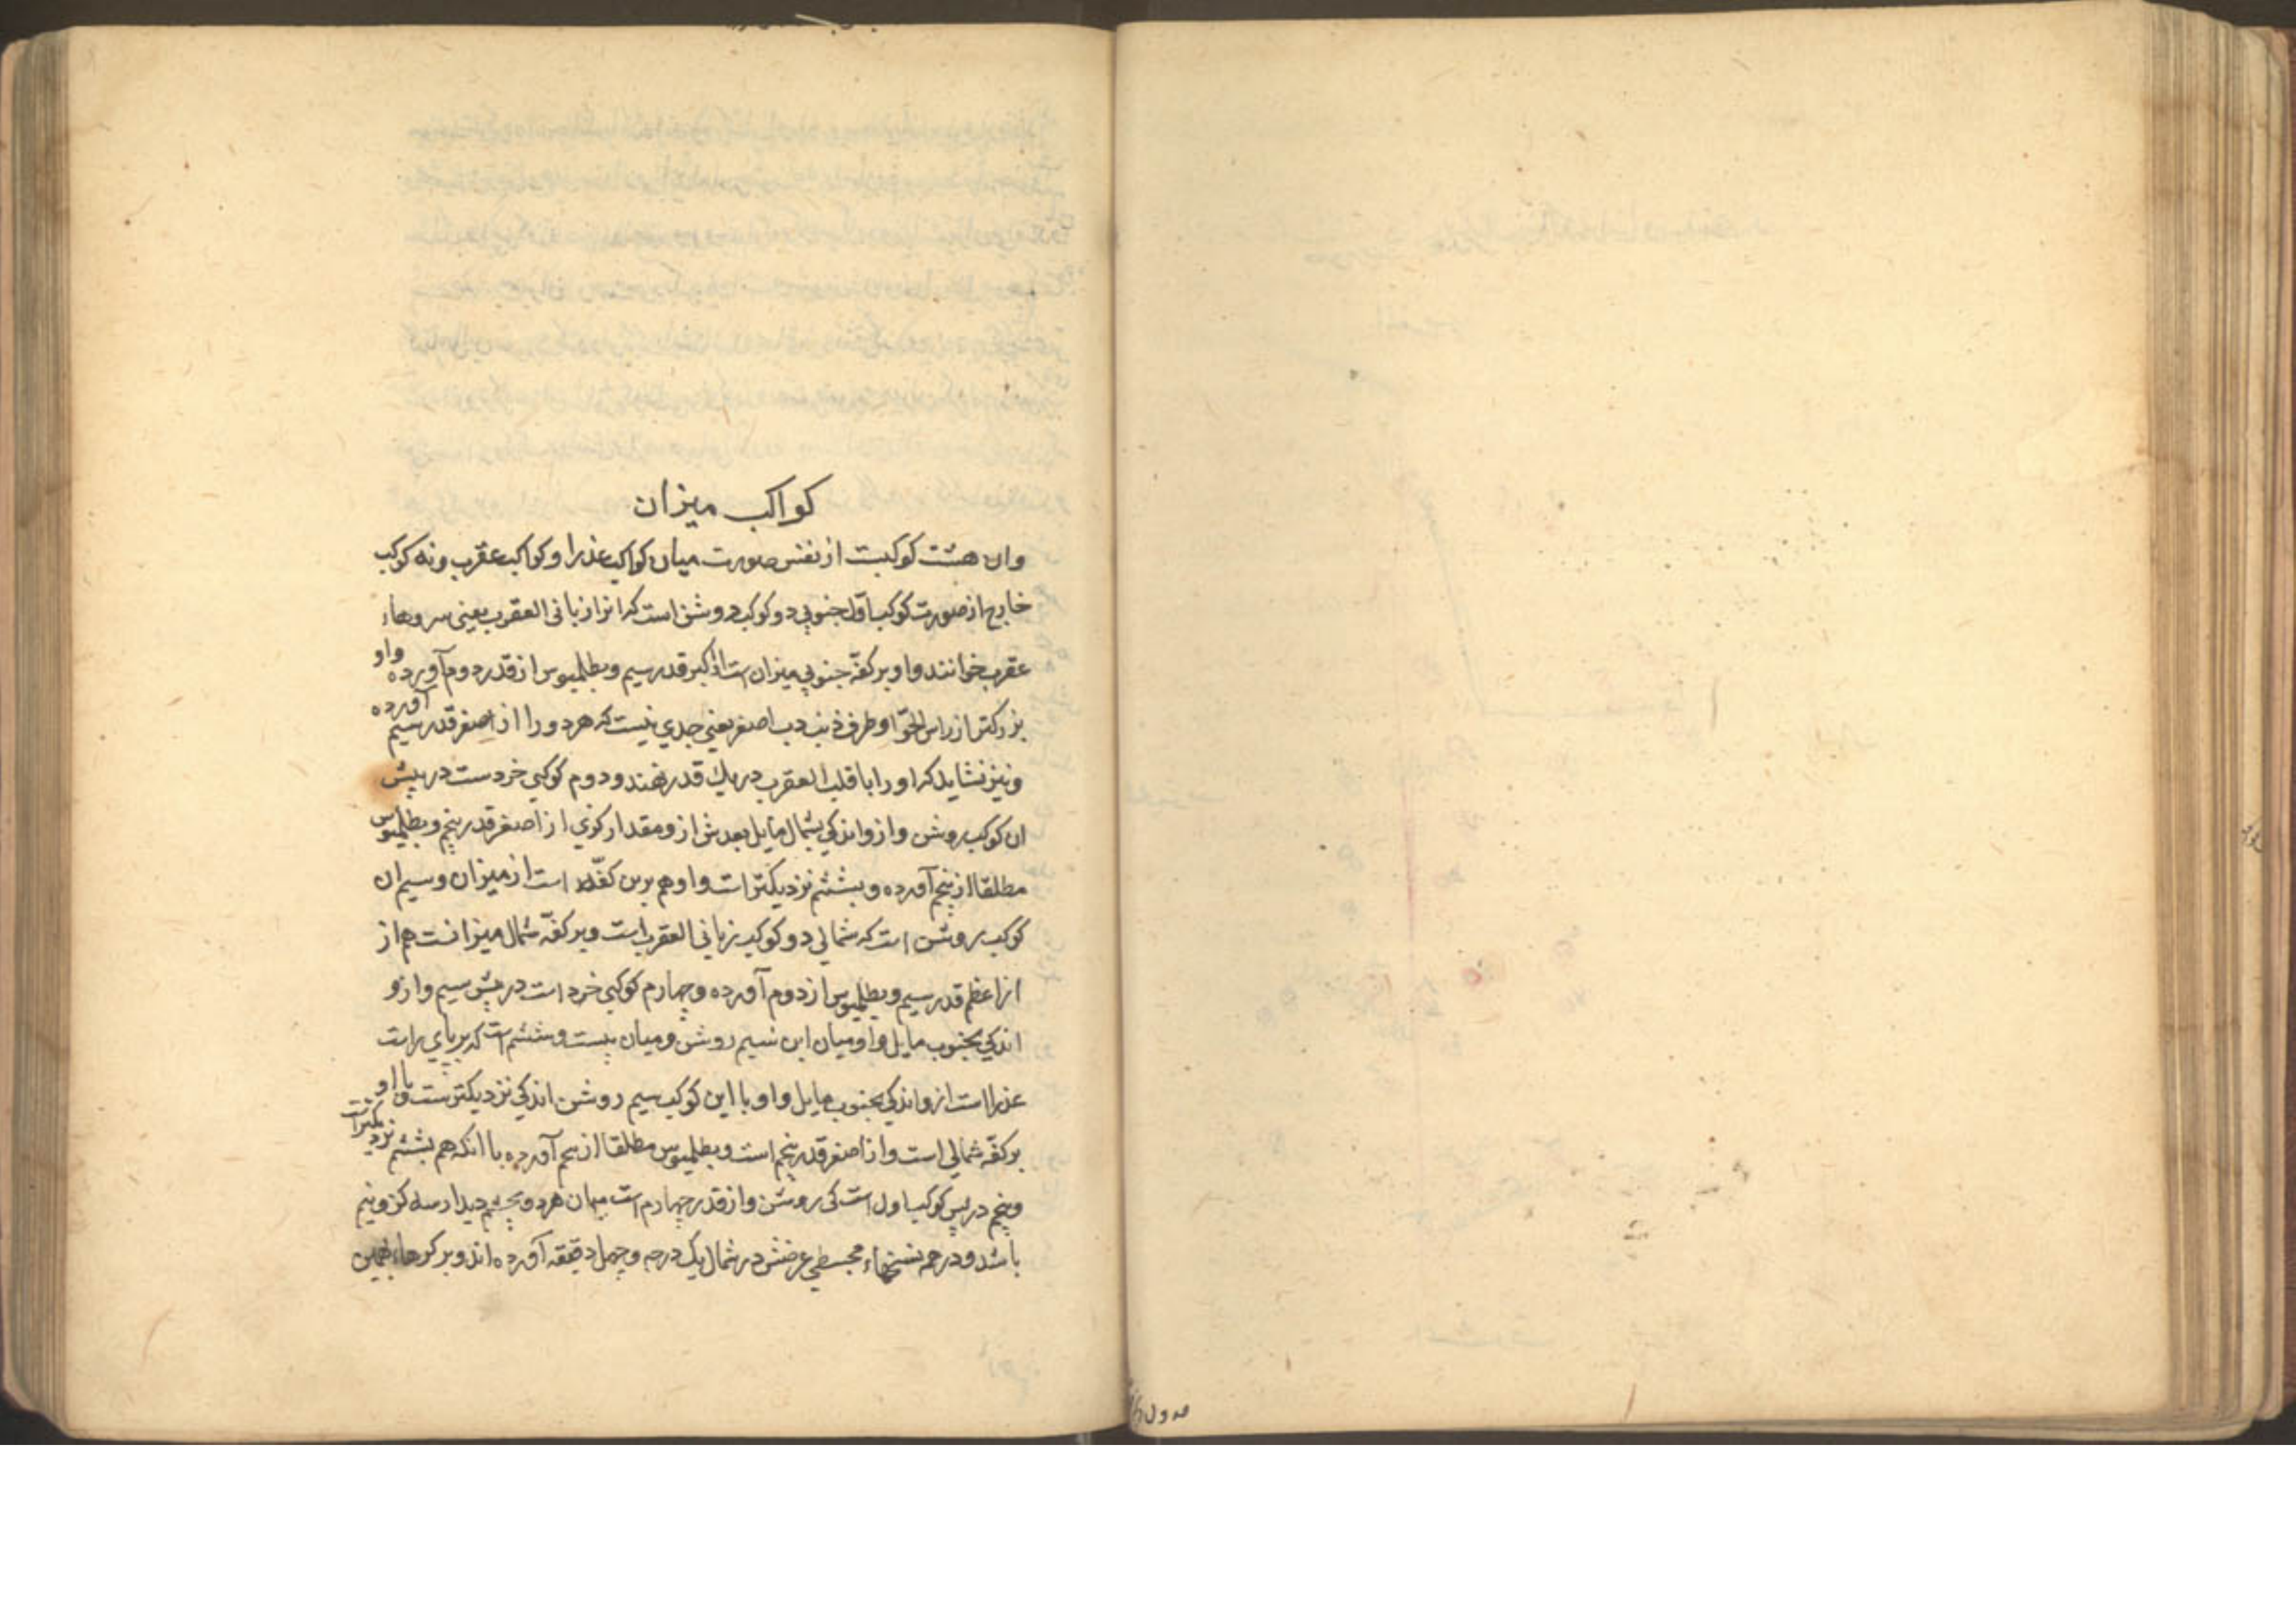 کواکب میزان
وان هشت کوکبست از نفس صورت میان کواکب عذرا و کواکب عقرب ونه کوکب
خارج از صورت کوکب اول جنوبی دو کوکب روشن است که انرا زبانی العقرب یعنی سروهاء
عقرب خوانند واو بر کفّه جنوبی میزان است از اکبر قدر سیم وبطلمیوس از قدر دوم آورده واو
بزرکتر از راس الحوّا وطرف ذنب دب اصغر یعنی جدی نیست که هر دو را از اصغر قدر سیم آورده
ونیز نشاید که او را با قلب العقرب در یك قدر نهند ودوم کوکبی خردست در پیش
ان کوکب روشن وازو اندکی بشمال مایل بعدش ازو مقدار کزی از اصغر قدر پنجم وبطلمیوس
مطلقا از پنجم آورده وبششم نزدیکتر است واو هم برین کفّه است از میزان وسیم ان
کوکب روشن است که شمالی دو کوکب زبانی العقرب است وبر کفّه شمال میزانست هم از
از اعظم قدر سیم وبطلمیوس از دوم آورده وچهارم کوکبی خرد است در پیش سیم وازو
اندکی بجنوب مایل واو میان این سیم روشن ومیان بیست وششم است که بر پای راست
عذرا است ازو اندکی بجنوب مایل واو با این کوکب سیم روشن اندکی نزدیکترست واو
بر کفّه شمالی است واز اصغر قدر پنجم است وبطلمیوس مطلقا از پنجم آورده با انکه هم بششم نزدیکترست
وپنجم در پس کوکب اول است کی روشن واز قدر چهارم است میان هر دو بچشم دیدار سه کز ونیم
باشد ودر همه نسختهاء مجسطی عرضش در شمال یک درجه وچهل دقیقه آورده اند وبر کرهاء همین